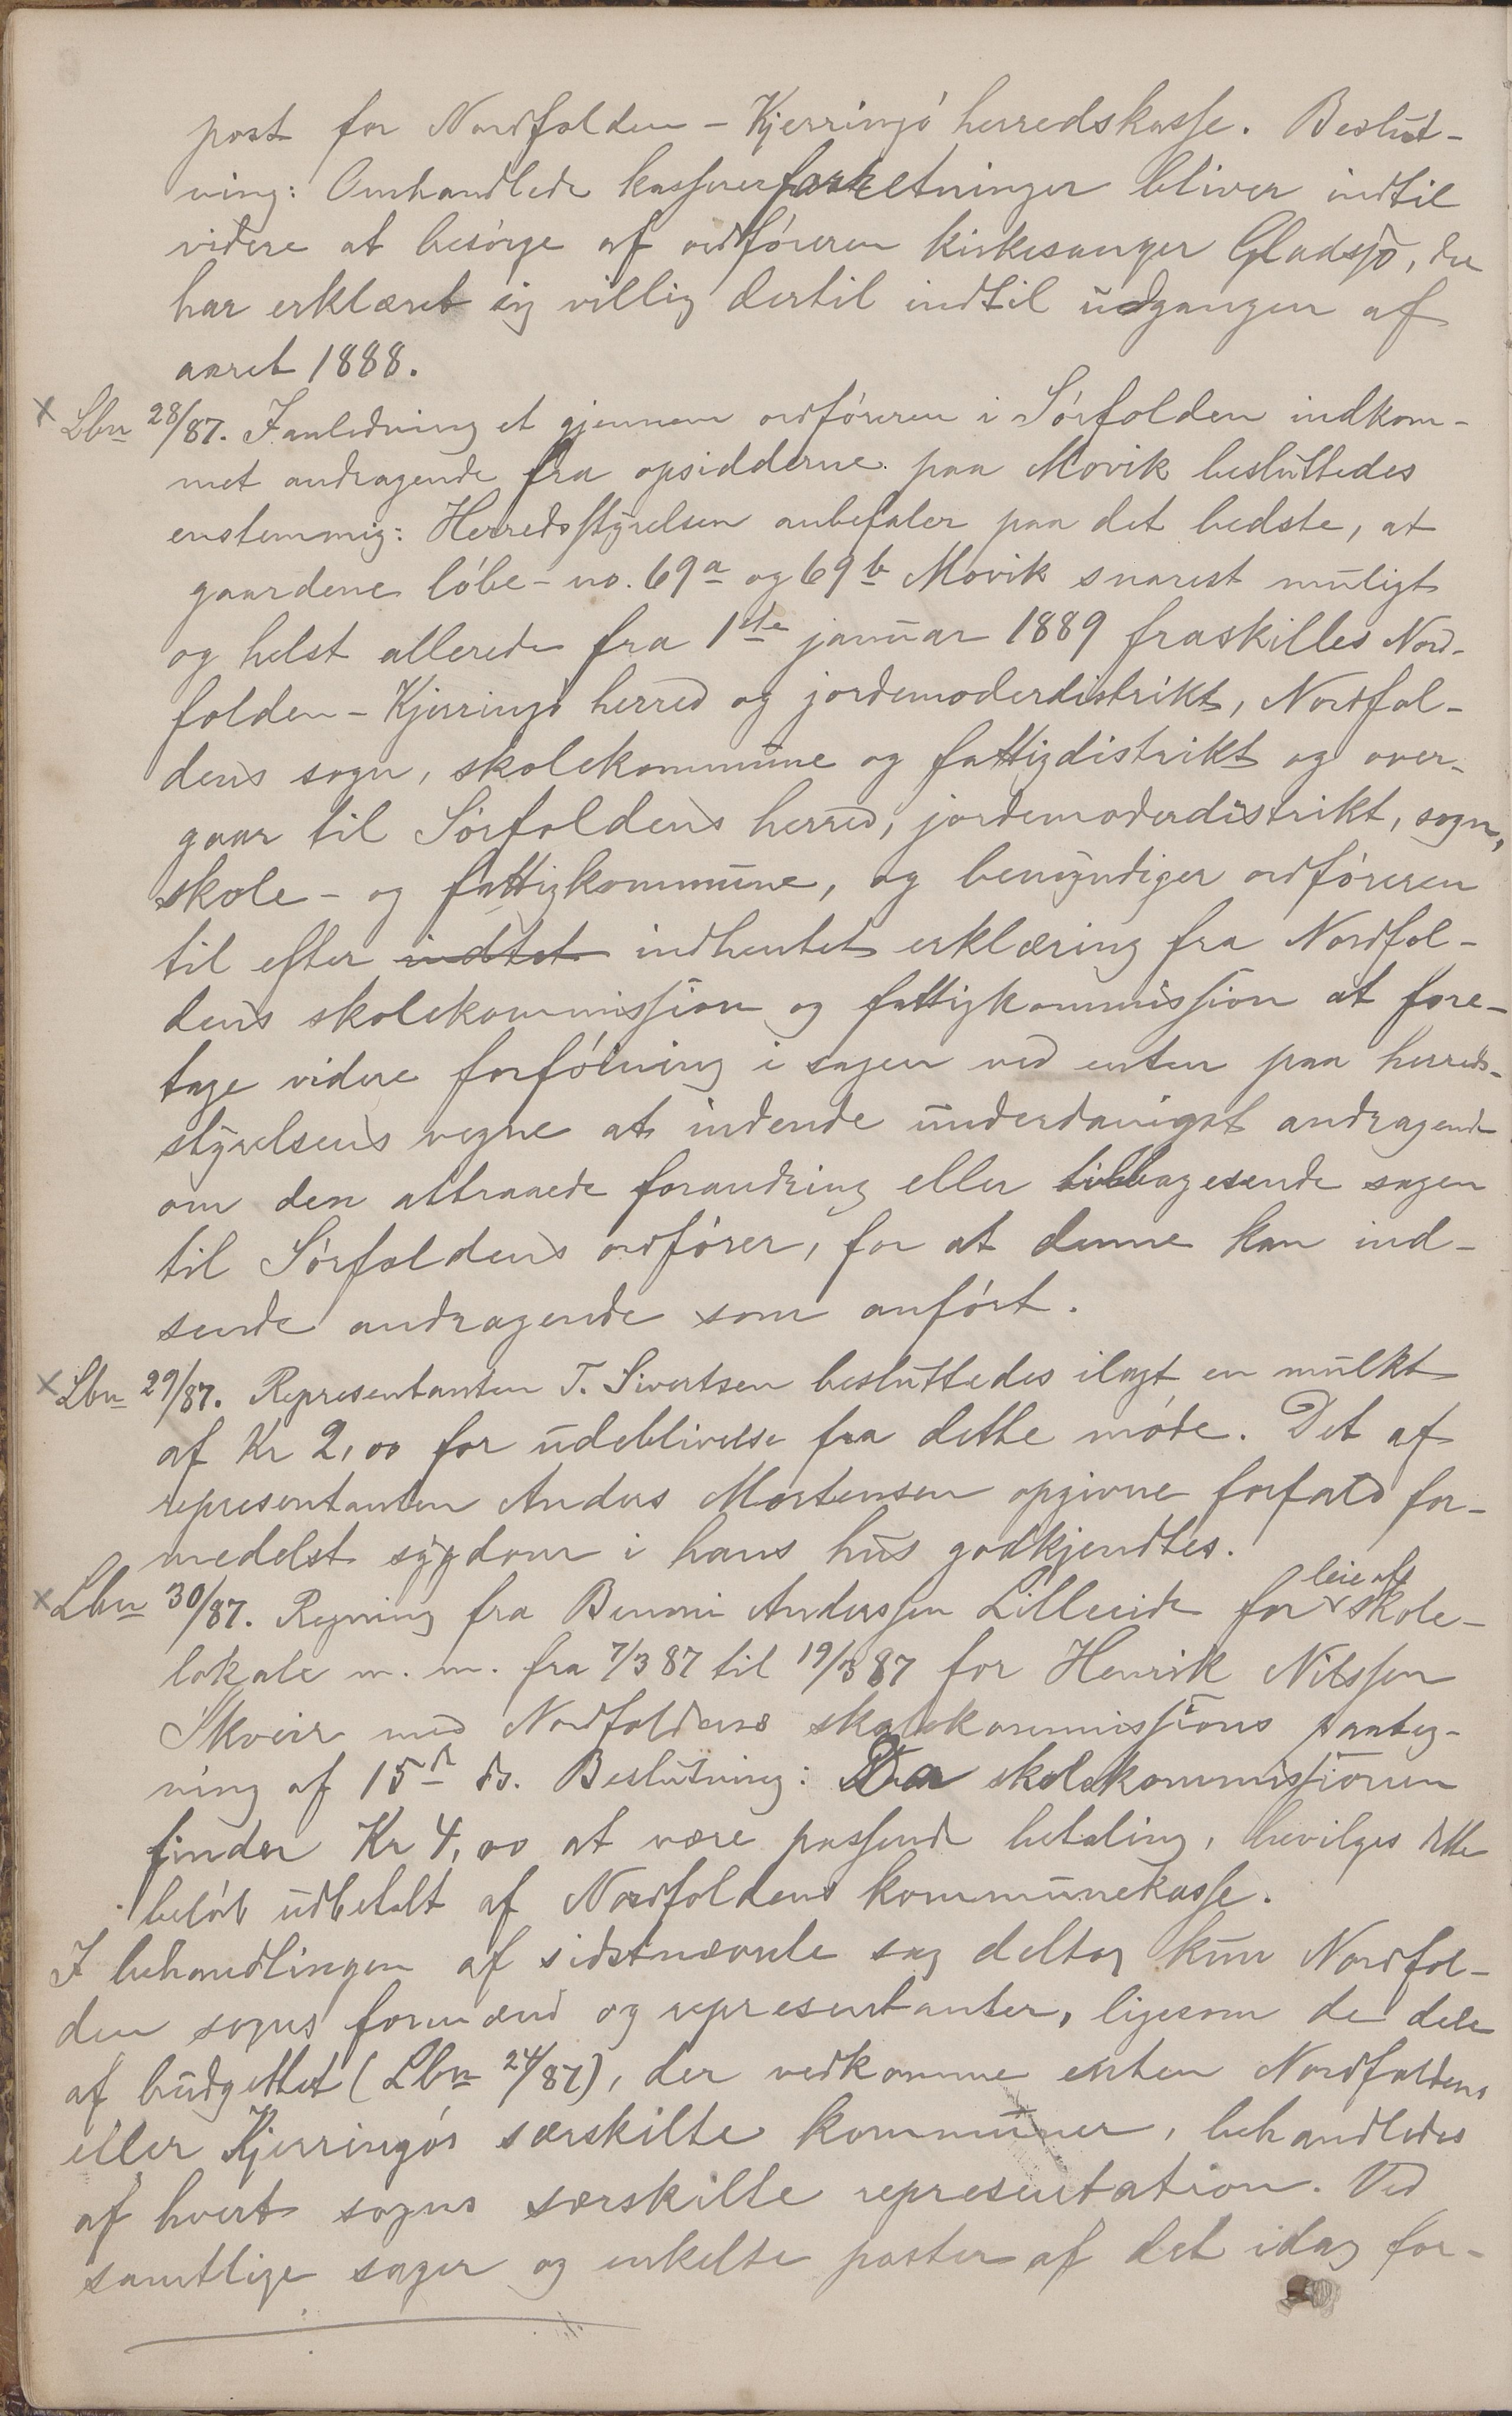 post for Nordfolden – Kjerringø herredskasse. Beslut-
ning: Omhandlede kassererforretninger bliver indtil
videre at besørge af ordføreren kirkesanger Gladsjø, der
har erklæret sig villig dertil indtil udgangen af
aaret 1888.
x Lbn 28/87. I anledning et gjennem ordføreren i Sørfolden indkom-
met andragende fra opsidderne paa Movik besluttedes
enstemmig: Herredsstyrelsen anbefaler paa det bedste, at
gaardene løbe-no. 69a og 69b Movik snarest muligt
og helst allerede fra 1ste januar 1889 fraskilles Nord-
folden – Kjerringø herred og jordemoderdistrikt, Nordfol-
dens sogn, skolekommune og fattigdistrikt og over-
gaar til Sørfoldens herred, jordemoderdistrikt, sogn,
skole- og fattigkommune, og bemyndiger ordføreren
til efter indtet indhentet erklæring fra Nordfol-
dens skolekommission og fattigkommission at fore-
tage videre forføining i sagen ved enten paa herreds-
styrelsens vegne at indende underdanigst andragende
om den attraaede forandring eller tilbagesende sagen
til Sørfoldens ordfører, for at denne kan ind-
sende andragende som anført.
x Lbn 29/87. Representanten T. Sivertsen besluttedes ilagt en mulkt
af Kr 2,00 for udeblivelse fra dette møde. Det af
representanten Anders Mortensen opgivne forfald for-
medelst sygdom i hans hus godkjendtes.
x Lbn 30/87. Regning fra Benmi Anderssen Lilleeide for leie af skole-
lokale m. m. fra 7/3 87 til 19/3 87 for Henrik Nilssen
Skveir med Nordfoldens skolekommissions paateg-
ning af 15de ds. Beslutning: Da skolekommissionen
finder Kr 4,00 at være passende betaling, bevilges dette
beløb udbetalt af Nordfoldens kommunekasse.
I behandlingen af sidstnævnte sag deltog kun Nordfol-
den sogns formænd og representanter, ligesom de dele
af budgettet (Lbn 24/87), der vedkomme enten Nordfoldens
eller Kjerringøs særskilte kommuner, behandledes
af hvert sogns særskilte representation. Ved
samtlige sager og enkelte poster af det idag for-